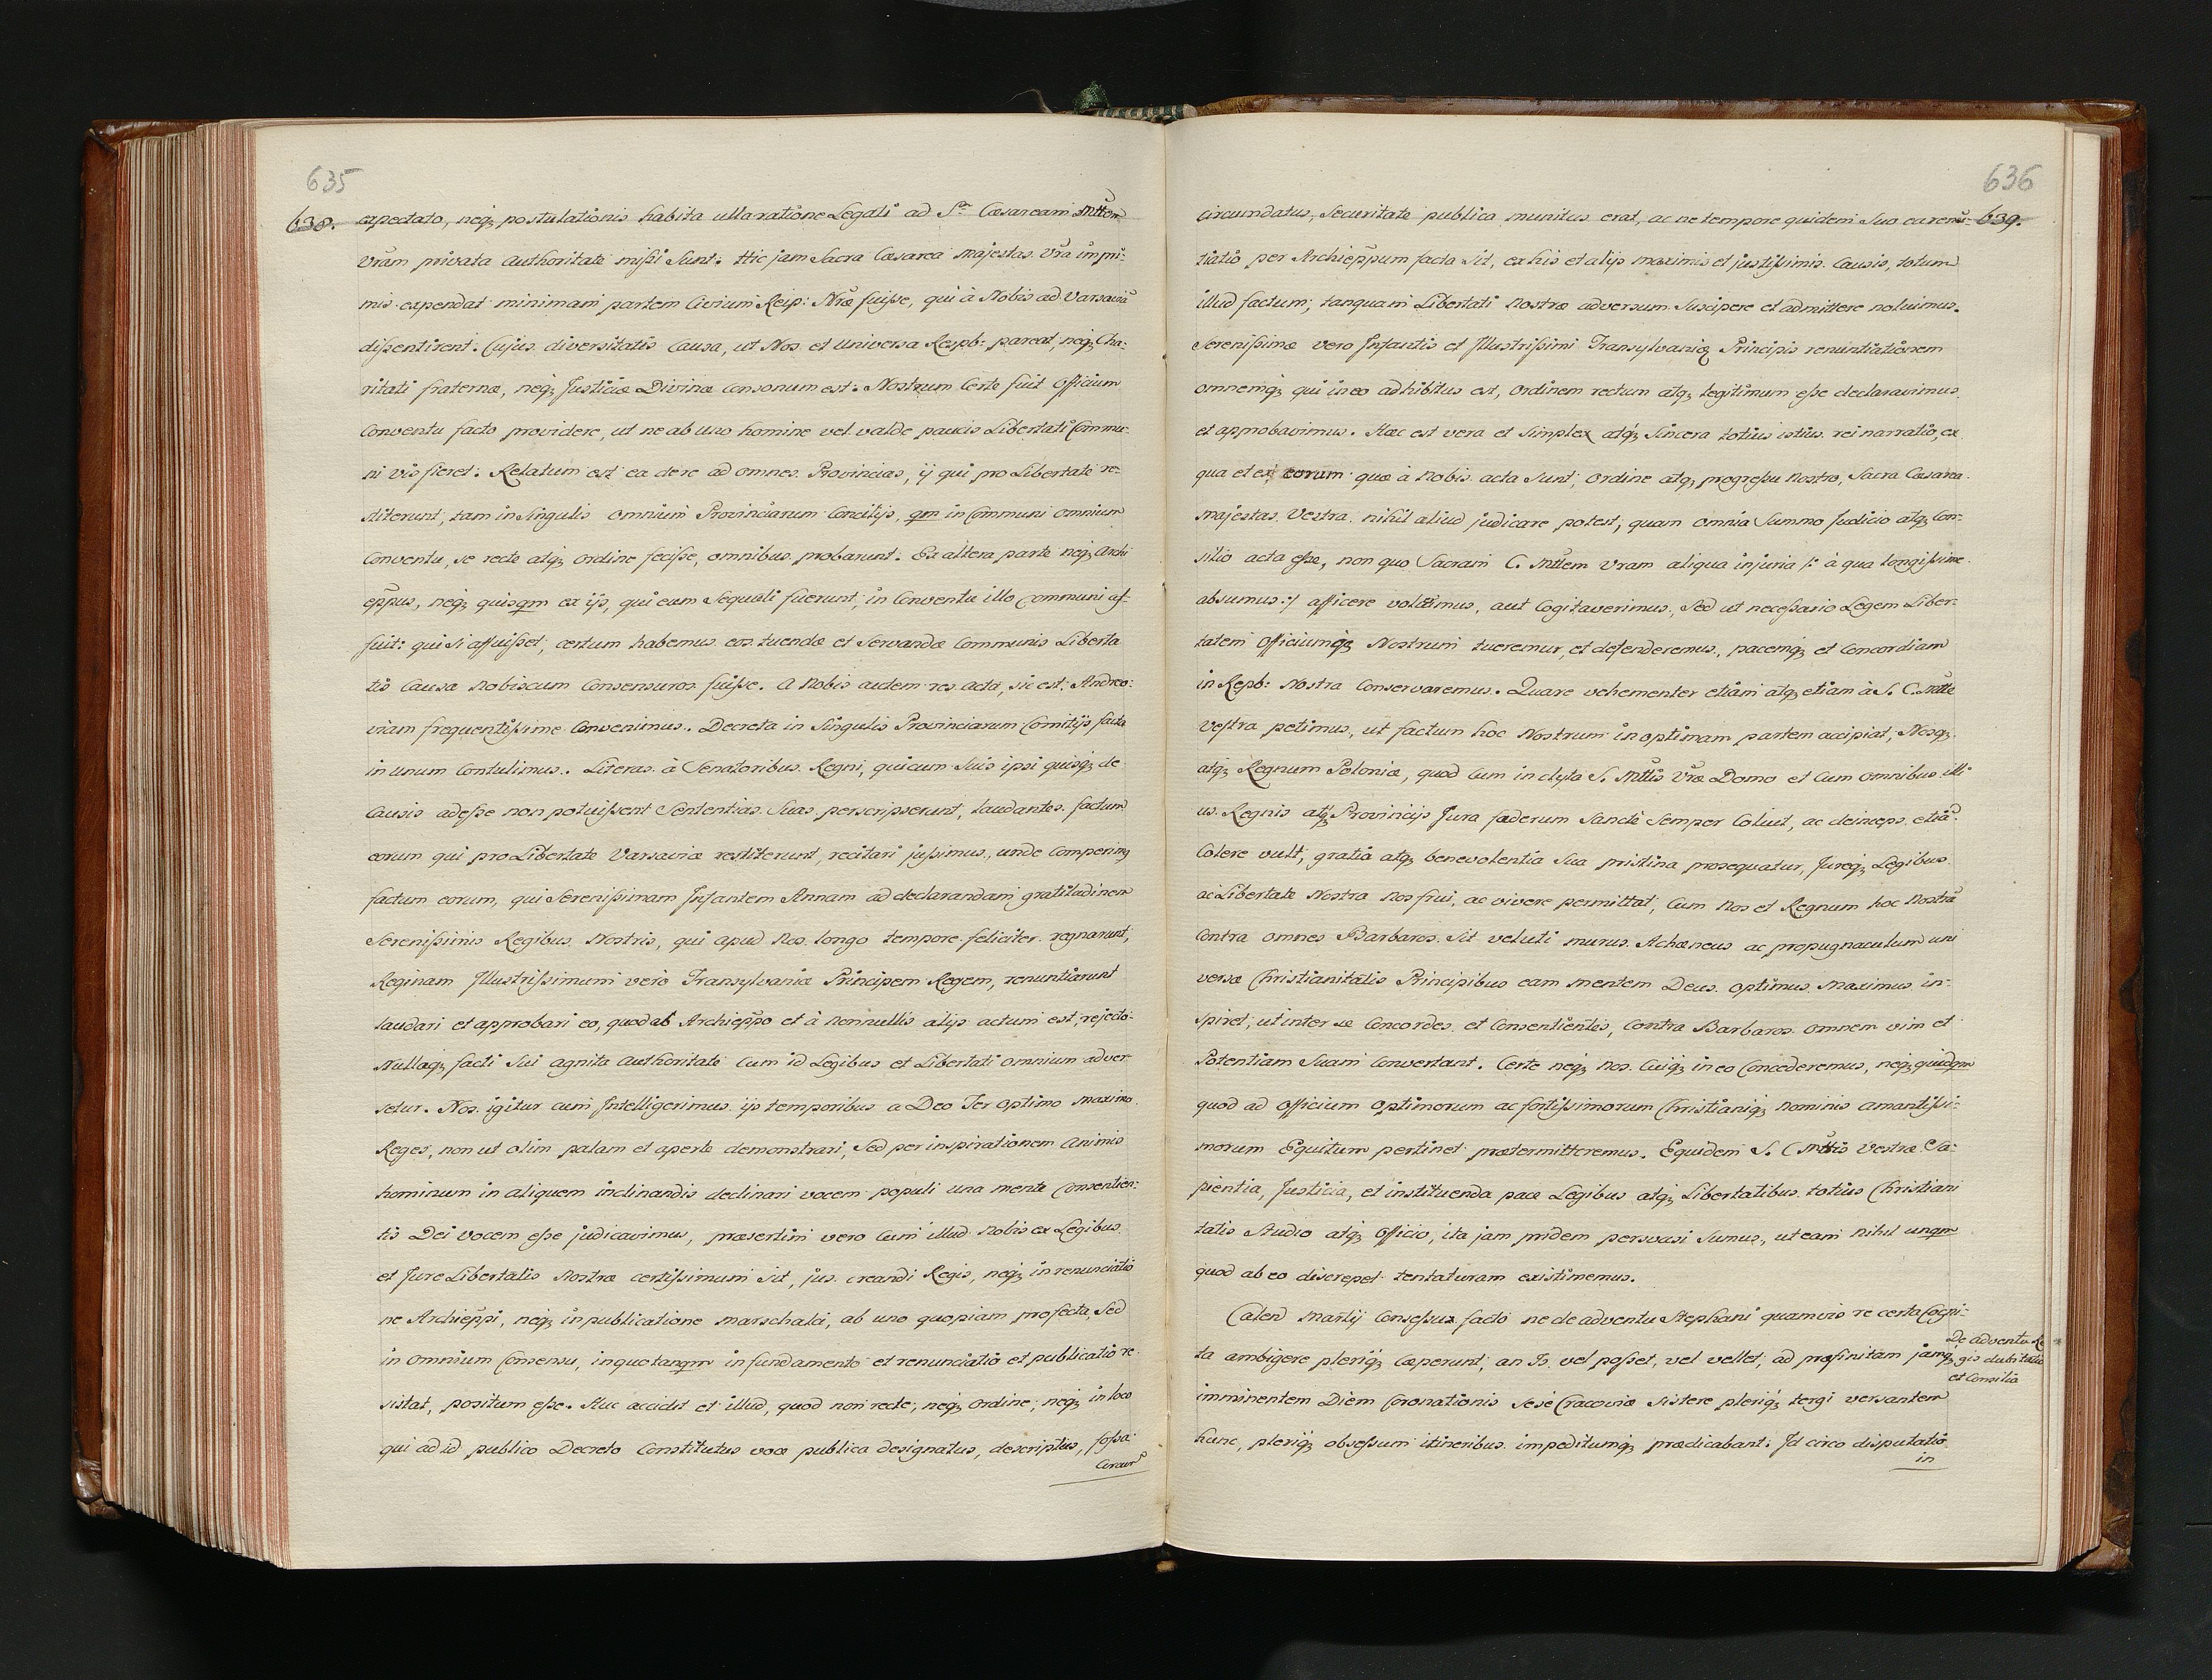 635
638. expectato, neq; postulationis habita ulla ratione Legali ad S.ᵃᵐ Cæsaream Mttem
Vr̃am privata Authoritate missi Sunt: Hic jam Sacra Cæsarea Majestas Vr̃a impri-
mis expendat minimam partem Civium Reip: Nr̃æ fuisse, qui à Nobis ad Varsaviã
dissentirent. Cujus diversitatis Causa, ut Nos et Universa Reipb: pareat, neq; Cha-
ritati fraternæ, neq; Justiciæ Divinæ consonum est: Nostrum Certe fuit Officium
Conventu facto providere, ut ne ab uno homine vel valde paucis Libertati Commu-
ni vis fieret: Relatum est ea de re ad omnes Provincias, ij qui pro Libertate re-
stiterunt, tam in Singulis omnium Provinciarum Concilijs, qm in Communi omnium
Conventu, se recte atq; ordine fecisse, omnibus probarunt. Ex altera parte neq; Archi
ep̃pus, neq; quisqm ex ijs, qui eum Sequuti fuerunt, in Conventu illo Communi af-
fuit: qui si affuisset, certum habemus eos tuendæ et Servandæ Communis Liberta
tis Causa Nobiscum Consensuros fuisse. A Nobis autem res acta, sic est: Andreo-
viam frequentissime Convenimus. Decreta in Singulis Provinciarum Comitijs facta
in unum Contulimus. Literas à Senatoribus Regni, qui cum Suis ipsi quisq; de
Causis adesse non potuissent Sententias Suas perscripserunt, laudantes factum
eorum qui pro Libertate Varsaviæ restiterunt, recitari jussimus, unde Comperimq
factum eorum, qui Serenissimam Infantem Annam ad declarandam gratitudinem
Serenissimis Regibus Nostris, qui apud Nos longo tempore feliciter regnarunt,
Reginam Illustrissimum verò Transylvaniæ Principem Regem, renuntiarunt
laudari et approbari eo, quod ab Archiep̃po et à nonnullis alijs actum est, rejecto-
Nullaq; facti Sui agnita Authoritate Cum id Legibus et Libertati omnium adver
setur. Nos igitur cum Intelligerimus ijs temporibus a Deo Ter Optimo Maximo
Reges, non ut olim palam et aperte demonstrari, Sed per inspirationem Animis
hominum in aliquem inclinandis declinari vocem populi una mente Consentien-
tis Dei Vocem esse judicavimus, præsertim vero Cum illud Nobis ex Legibus
et Jure Libertatis Nostræ certissimum sit, jus creandi Regis, neq; in renunciatio
ne Archiep̃pi, neq; in publicatione Marschalci, ab uno quopiam profecta, Sed
in omnium Consensu, in quo tanqm in fundamento et renunciatio et publicatio re-
sistat, positum esse. Huc accidit et illud, quod non recte, neq; ordine, neq; in loco
qui ad id publico Decreto Constitutus voce publica designatus, descriptus, fossa
Circum
636
circumdatus, Securitate publica munitus erat, ac ne tempore quidem Suo ea renũ- 639.
tiatio per Archiep̃pum facta sit, ex his et alijs maximis et justissimis Causis, totum
illud factum, tanquam Libertati Nostræ adversum Suscipere et admittere noluimus.
Serenissimæ vero Infantis et Illustrissimi Transylvaniæ Principis renuntiationem
omnemq; qui in eo adhibitus est, Ordinem rectum atq; legitimum esse declaravimus
et approbavimus. Hæc est vera et Simplex atq; Sincera totius istius rei narratio, ex
qua et ex eorum quæ à Nobis acta Sunt, Ordine atq; progressu Nostro, Sacra Cæsarea
Majestas Vestra nihil aliud judicare potest, quam omnia Summo Judicio atq; Con-
silio acta esse, non quo Sacram C. Mttem Vram aliqua injuria /: à qua longissime
absumus :/ afficere voluimus, aut Cogitaverimus, Sed ut necessario Legem Liber-
tatem Officiumq; Nostrum tueremur, et defenderemus, pacemq; et Concordiam
in Repb: Nostra Conservaremus. Quare vehementer etiam atq; etiam à S. C. Mtte
Vestra petimus, ut factum hoc Nostrum in optimam partem accipiat, Nosq;
atq; Regnum Poloniæ, quod Cum inclyta S. Mttis Vr̃æ Domo et Cum omnibus illi
us Regnis atq; Provincijs Jura fæderum Sanctè Semper Coluit, ac deinceps etiã
Colere vult, gratia atq; benevolentia Sua pristina prosequatur, Jureq; Legibus
ac Libertate Nostra nos frui, ac vivere permittat, Cum Nos et Regnum hoc Nostrũ
Contra omnes Barbaros Sit veluti murus Achæneus ac propugnaculum uni
versæ Christianitatis Principibus eam mentem Deus Optimus Maximus in-
spiret, ut inter se Concordes et Consentientes, Contra Barbaros omnem vim et
Potentiam Suam Convertant. Certe neq; Nos Cuiq; in eo Concederemus, neq; quidqm
quod ad Officium Optimorum ac fortissimorum Christianiq; Nominis amantissi-
morum Equitum pertinet prætermitteremus. Equidem S. C. Mttis Vestræ Sa-
pientia, Justicia, et instituenda pace Legibus atq; Libertatibus totius Christiani
tatis Studio atq; Officio, ita jam pridem persvasi Sumus, ut eam nihil unqm
quod ab eo discrepet tentaturam existimemus.
Calend Martij Consessus facto ne de adventu Stephani quamvis re certa Cogni-
ta ambigere pleriq; cæperunt, an Is vel posset, vel vellet, ad præfinitam jamq;
imminentem Diem Coronationis sesé Cracoviæ sistere pleriq; tergi versantem
hunc, pleriq; obsessum itineribus impeditumq; prædicabant: Id circo disputatio
in
De adventu Re
gis dubitatio
et Consilia